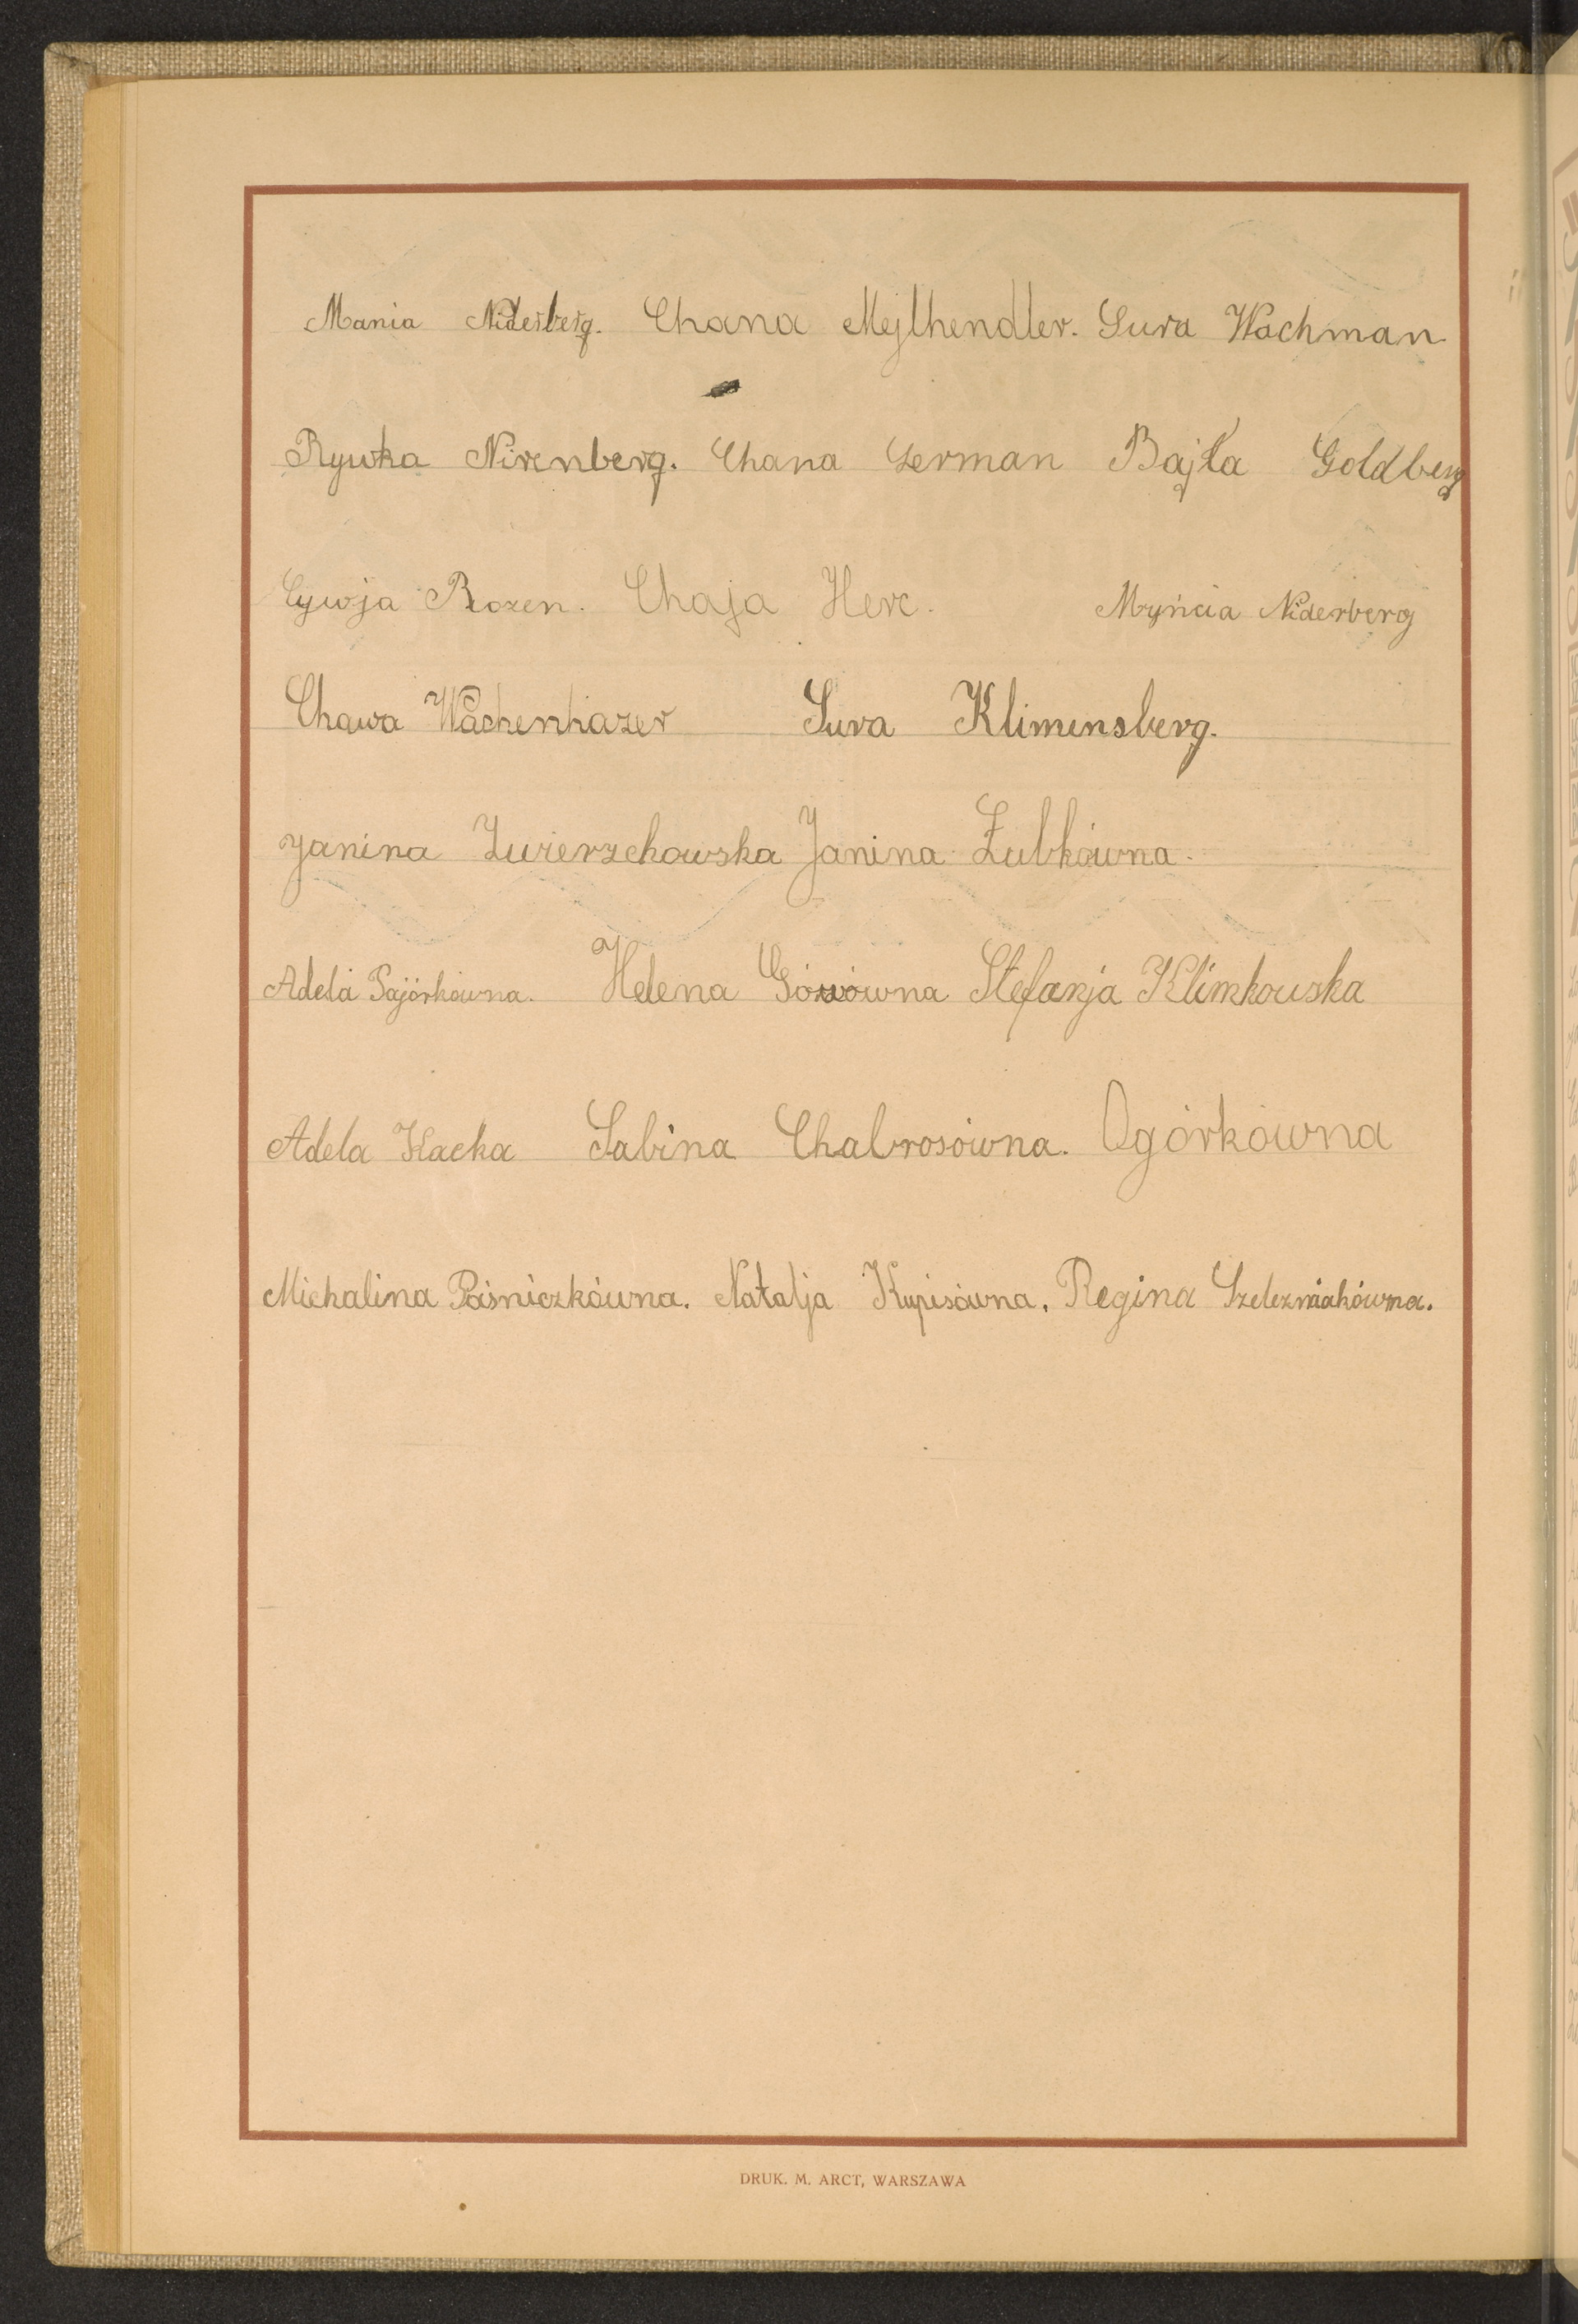 Mania Niderberg. Chana Mejlhendler. Sura Wachman
Rywka Nirenberg. Chana Lerman Bajla Goldberg
Cywja Rozen. Chaja Herc. Myńcia Niderberg
Chawa Wachenhazer Sura Klimensberg.
Janina Zwierzchowska Janina Żubkówna.
Adela Pajórkówna. Helena Stefanja Klimkowska
Adela Kacka Sabina Chabrosówna. Ogórkówna
Michalina Paśniczkówna. Natalja Kupisówna. Regina Szelezniakówna.
DRUK. M. ARCT, WARSZAWA